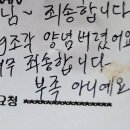 님~ 죄송합니다
9조각 양념 버렸어요
너무 죄송합니다
부족 아니예요
요청